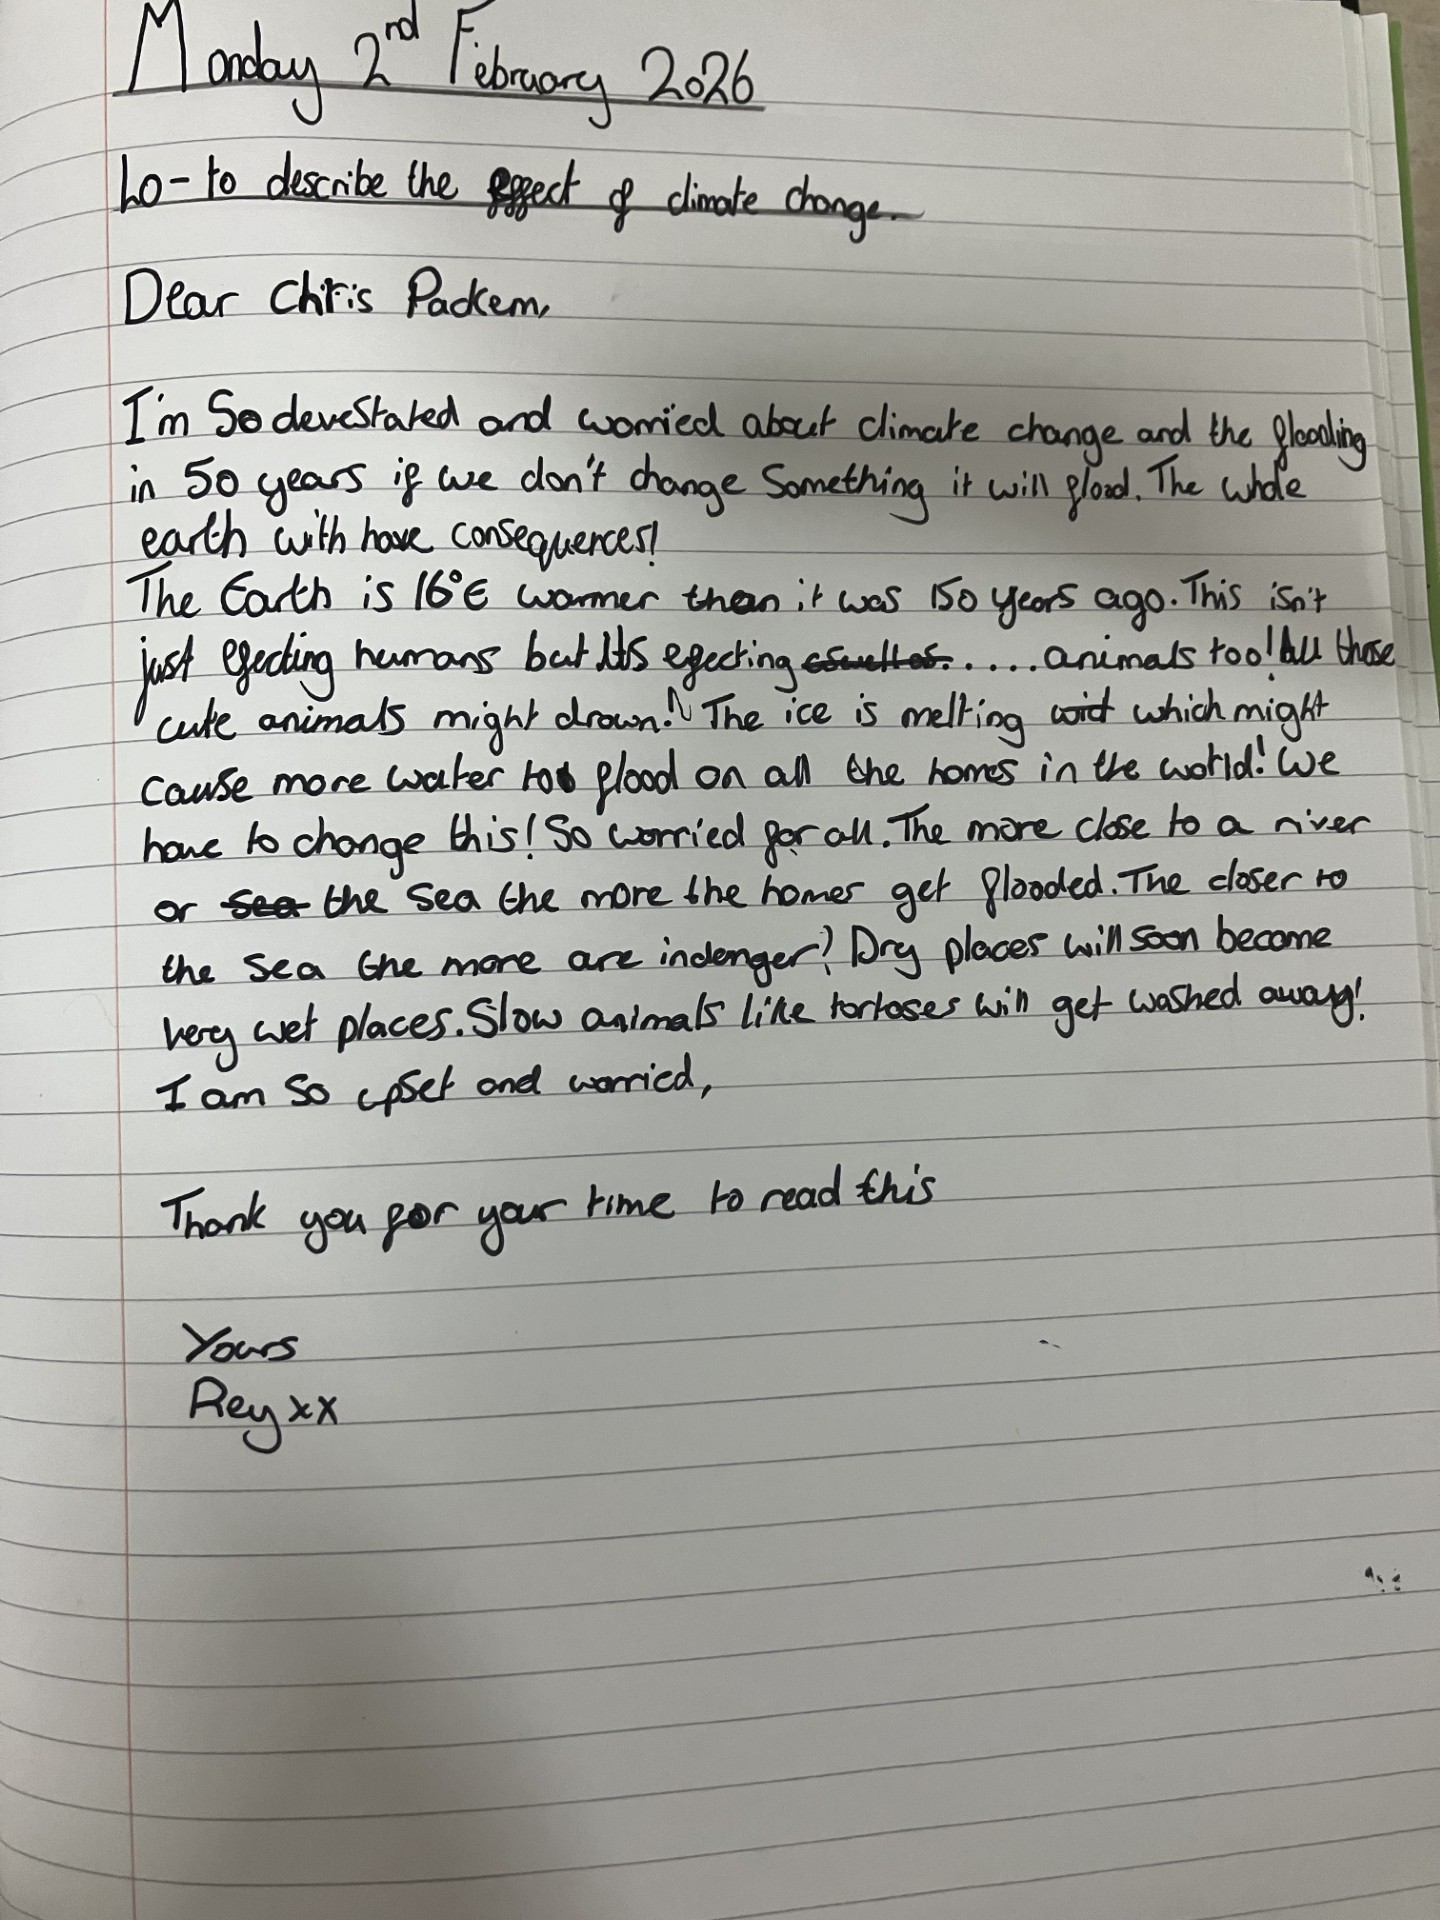 Monday 2nd February 2026
Lo - to describe the effect of climate change.
Dear Chris Packem,
I'm So devestated and worried about climate change and the flooding
in 50 years if we don't change Something it will flood. The whole
earth with have consequences!
The Earth is 16°C warmer then it was 150 years ago. This isn't
just efecting humans but It's efecting aswell as. ..... animals too! All those
cute animals might drown! The ice is melting wict which might
cause more water to flood on all the homes in the world! We
have to change this! So worried for all. The more close to a river
or sea the sea the more the homes get flooded. The closer to
the sea the more are indenger! Dry places will soon become
very wet places. Slow animals like tortoses will get washed away!
I am So upset and worried,
Thank you for your time to read this
Yours
Rey xx